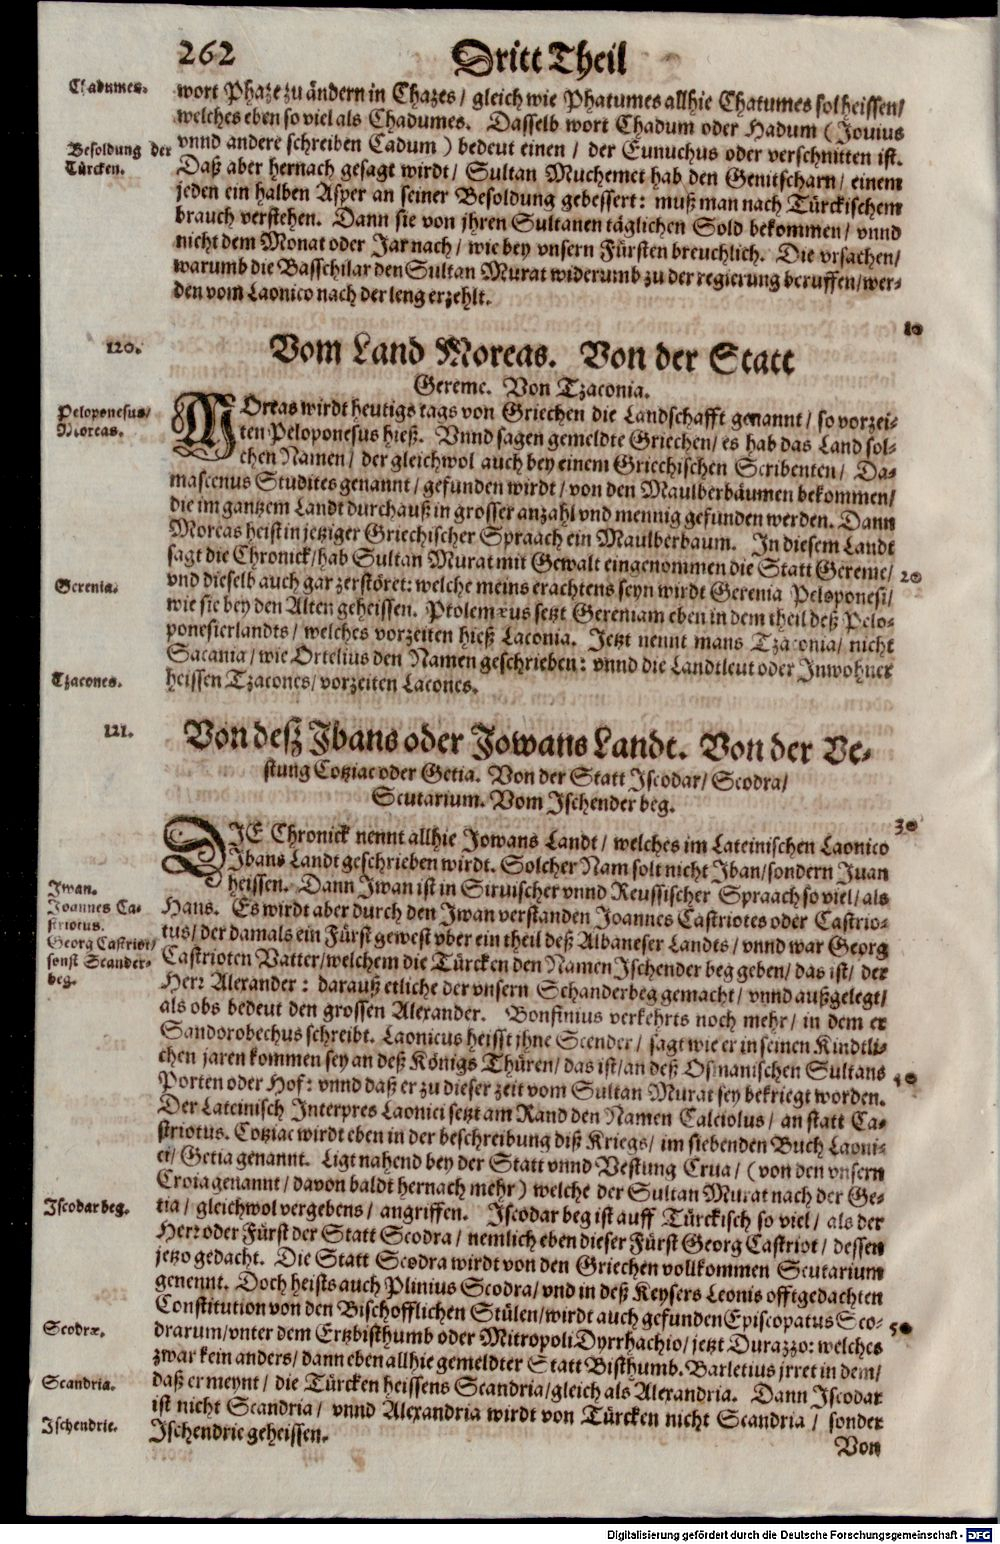 262
Dritt Theil
Chadumes.
wort Phaze zu ändern in Chazes / gleich wie Phatumes allhie Chatumes sol heissen/
welches eben so viel als Chadumes. Dasselb wort Chadum oder Hadum ( Jouius
Besoldung der
Türcken.
vnnd andere schreiben Cadum ) bedeut einen / der Eunuchus oder verschnitten ist.
Daß aber hernach gesagt wirdt / Sultan Muchemet hab den Genitscharn / einem
jeden ein halben Asper an seiner Besoldung gebessert: muß man nach Türckischem
brauch verstehen. Dann sie von jhren Sultanen täglichen Sold bekommen / vnnd
nicht dem Monat oder Jar nach / wie bey vnsern Fürsten breuchlich. Die vrsachen/
warumb die Basschilar den Sultan Murat widerumb zu der regierung beruffen/wer-
den vom Laonico nach der leng erzehlt.
10
120.
Vom Land Moreas. Von der Statt
Gereme. Von Tzaconia.
Peloponesus/
Moreas.
MOreas wirdt heutigs tags von Griechen die Landschafft genannt / so vorzei-
ten Peloponesus hieß. Vnnd sagen gemeldte Griechen/ es hab das Land sol-
chen Namen / der gleichwol auch bey einem Griechischen Scribenten / Da-
mascenus Studites genannt / gefunden wirdt / von den Maulberbäumen bekommen/
die im gantzem Landt durchauß in grosser anzahl vnd mennig gefunden werden. Dann
Moreas heist in jetziger Griechischer Spraach ein Maulberbaum. In diesem Landt
sagt die Chronick/hab Sultan Murat mit Gewalt eingenommen die Statt Gereme/
20
Gerenia.
vnd dieselb auch gar zerstöret: welche meins erachtens seyn wirdt Gerenia Peloponesi/
wie sie bey den Alten geheissen. Ptolemæus setzt Gereniam eben in dem theil deß Pelo-
ponesierlandts / welches vorzeiten hieß Laconia. Jetzt nennt mans Tzaconia/ nicht
Sacania / wie Ortelius den Namen geschrieben: vnnd die Landtleut oder Inwohner
Tzacones.
heissen Tzacones/ vorzeiten Lacones.
121.
Von deß Ibans oder Jowans Landt. Von der Ve-
stung Cotziac oder Getia. Von der Statt Iscodar/ Scodra/
Scutarium. Vom Ischender beg.
30
DIE Chronick nennt allhie Jowans Landt / welches im Lateinischen Laonico
Ibans Landt geschrieben wirdt. Solcher Nam solt nicht Iban/sondern Iuan
Iwan.
heissen. Dann Iwan ist in Siruischer vnnd Reussischer Spraach so viel/ als
Joannes Ca-
striotus.
Hans. Es wirdt aber durch den Iwan verstanden Joannes Castriotes oder Castrio-
tus/ der damals ein Fürst gewest vber ein theil deß Albaneser Landts / vnnd war Georg
Georg Castriot/
sonst Scander-
beg.
Castrioten Vatter/welchem die Türcken den Namen Ischender beg geben/ das ist/ der
Herr Alexander : darauß etliche der vnsern Schanderbeg gemacht / vnnd außgelegt/
als obs bedeut den grossen Alexander. Bonfinius verkehrts noch mehr / in dem er
Sandorobechus schreibt. Laonicus heisst jhne Scender / sagt wie er in seinen Kindtli-
chen jaren kommen sey an deß Königs Thüren/ das ist/ an deß Osmanischen Sultans
40
Porten oder Hof: vnnd daß er zu dieser zeit vom Sultan Murat sey bekriegt worden.
Der Lateinisch Interpres Laonici setzt am Rand den Namen Calciolus / an statt Ca-
striotus. Cotziac wirdt eben in der beschreibung diß Kriegs / im siebenden Buch Laoni-
ci/ Getia genannt. Ligt nahend bey der Statt vnnd Vestung Crua / (von den vnsern
Croia genannt / davon baldt hernach mehr ) welche der Sultan Murat nach der Ge-
Iscodar beg.
tia / gleichwol vergebens / angriffen. Iscodar beg ist auff Türckisch so viel / als der
Herr oder Fürst der Statt Scodra / nemlich eben dieser Fürst Georg Castriot / dessen
jetzo gedacht. Die Statt Scodra wirdt von den Griechen vollkommen Scutarium
genennt. Doch heists auch Plinius Scodra/ vnd in deß Keysers Leonis offtgedachten
Constitution von den Bischofflichen Stülen/wirdt auch gefunden Episcopatus Sco-
50
Scodræ.
drarum/vnter dem Ertzbisthumb oder Mitropoli Dyrrhachio/ jetzt Durazzo: welches
zwar kein anders/ dann eben allhie gemeldter Statt Bisthumb. Barletius jrret in dem/
Scandria.
daß er meynt / die Türcken heissens Scandria/gleich als Alexandria. Dann Iscodar
ist nicht Scandria / vnnd Alexandria wirdt von Türcken nicht Scandria / sonder
Ischendrie.
Ischendrie geheissen.
Von
Digitalisierung gefördert durch die Deutsche Forschungsgemeinschaft - DFG